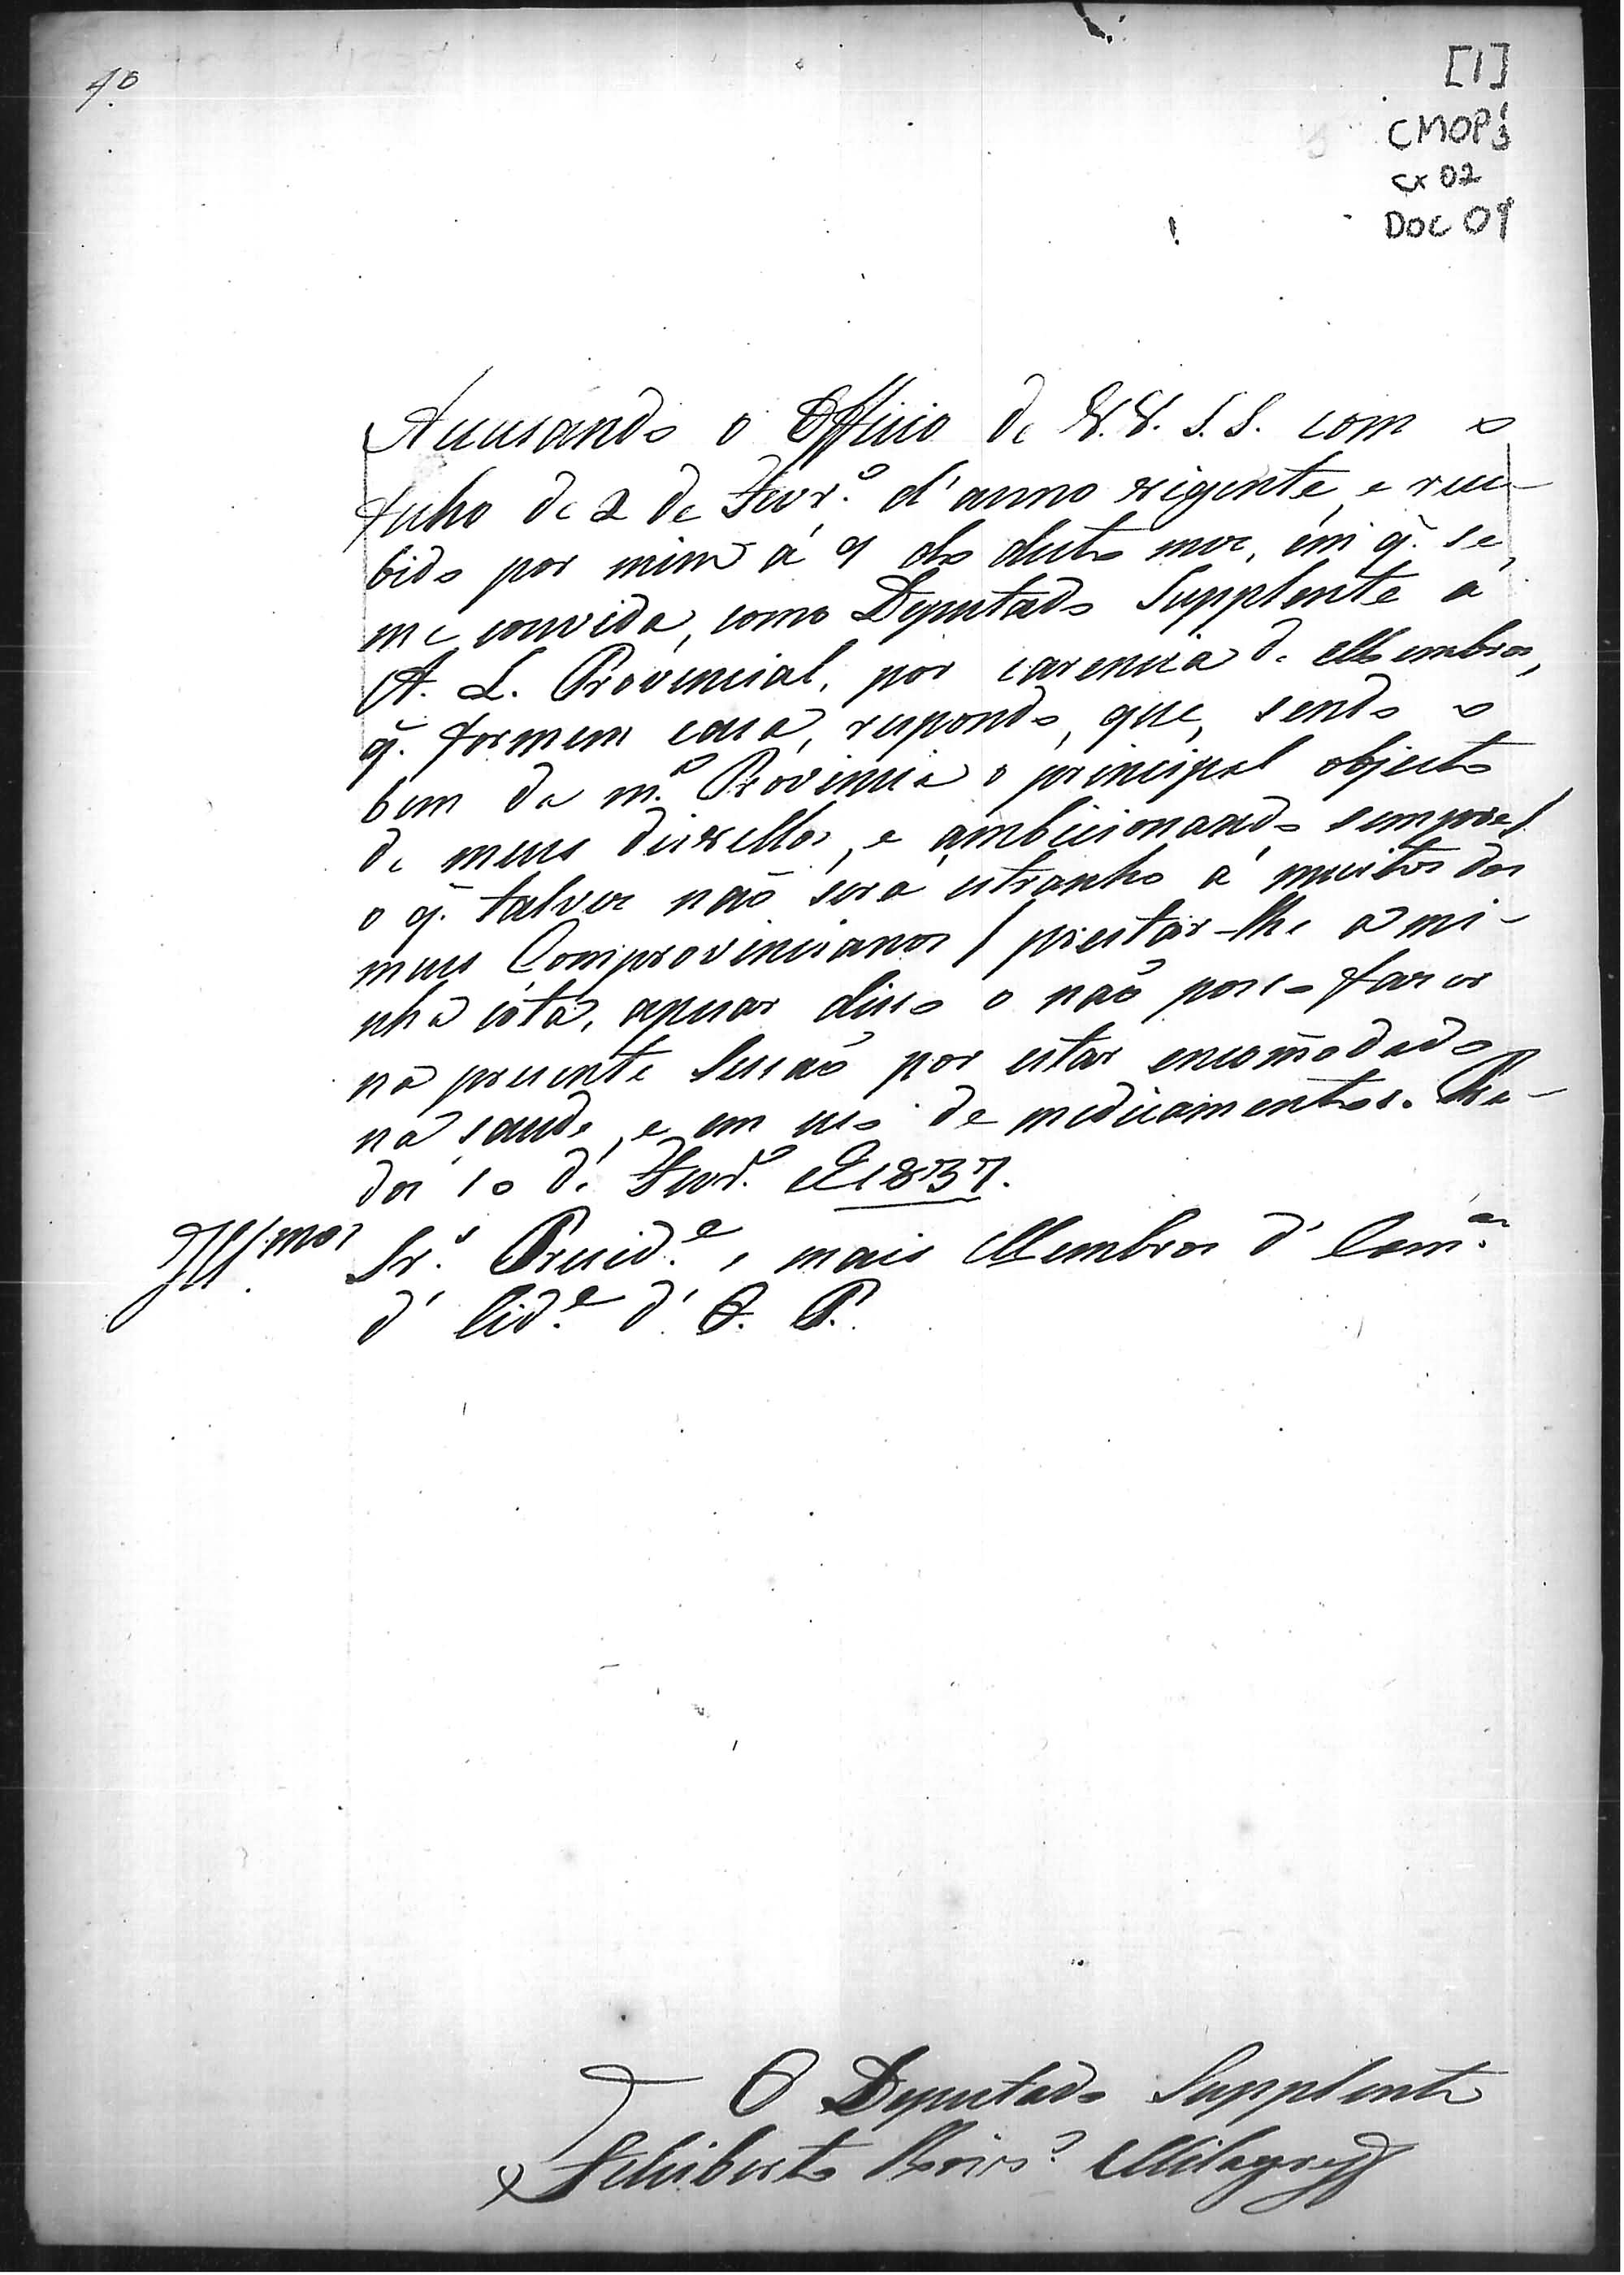 4.º
[1]
CMOP
cx 02
DOC 09
Accusando o Officio de V.V. S.S. com o
fecho de 2 de Fevr.º d'anno vigente, e rece-
bido por mim á 9 do dicto mez, em q̃. se
me convida, como Deputado Supplente a
A. L. Provincial, por carencia de Membros,
q̃. formem casa, respondo, que, sendo o
bem da m.ª Provincia o principal objecto
de meus disvellos, e ambicionando sempre /
o q̃. talvez não será estranho á muitos dos
meus Comprovincianos / prestar-lhe a mi-
nha cóta, apezar disso o não posso fazer
na presente Sessaõ por estar encom̃odado
na saude, e em uso de medicamentos.
10 de Fevr.º de 1837.
Ill.mos Sr.s Presid.e, e mais Membros d' Cam.ª
d' Cid.e d' O. P.
O Deputado Supplente
Feliberto Milagres